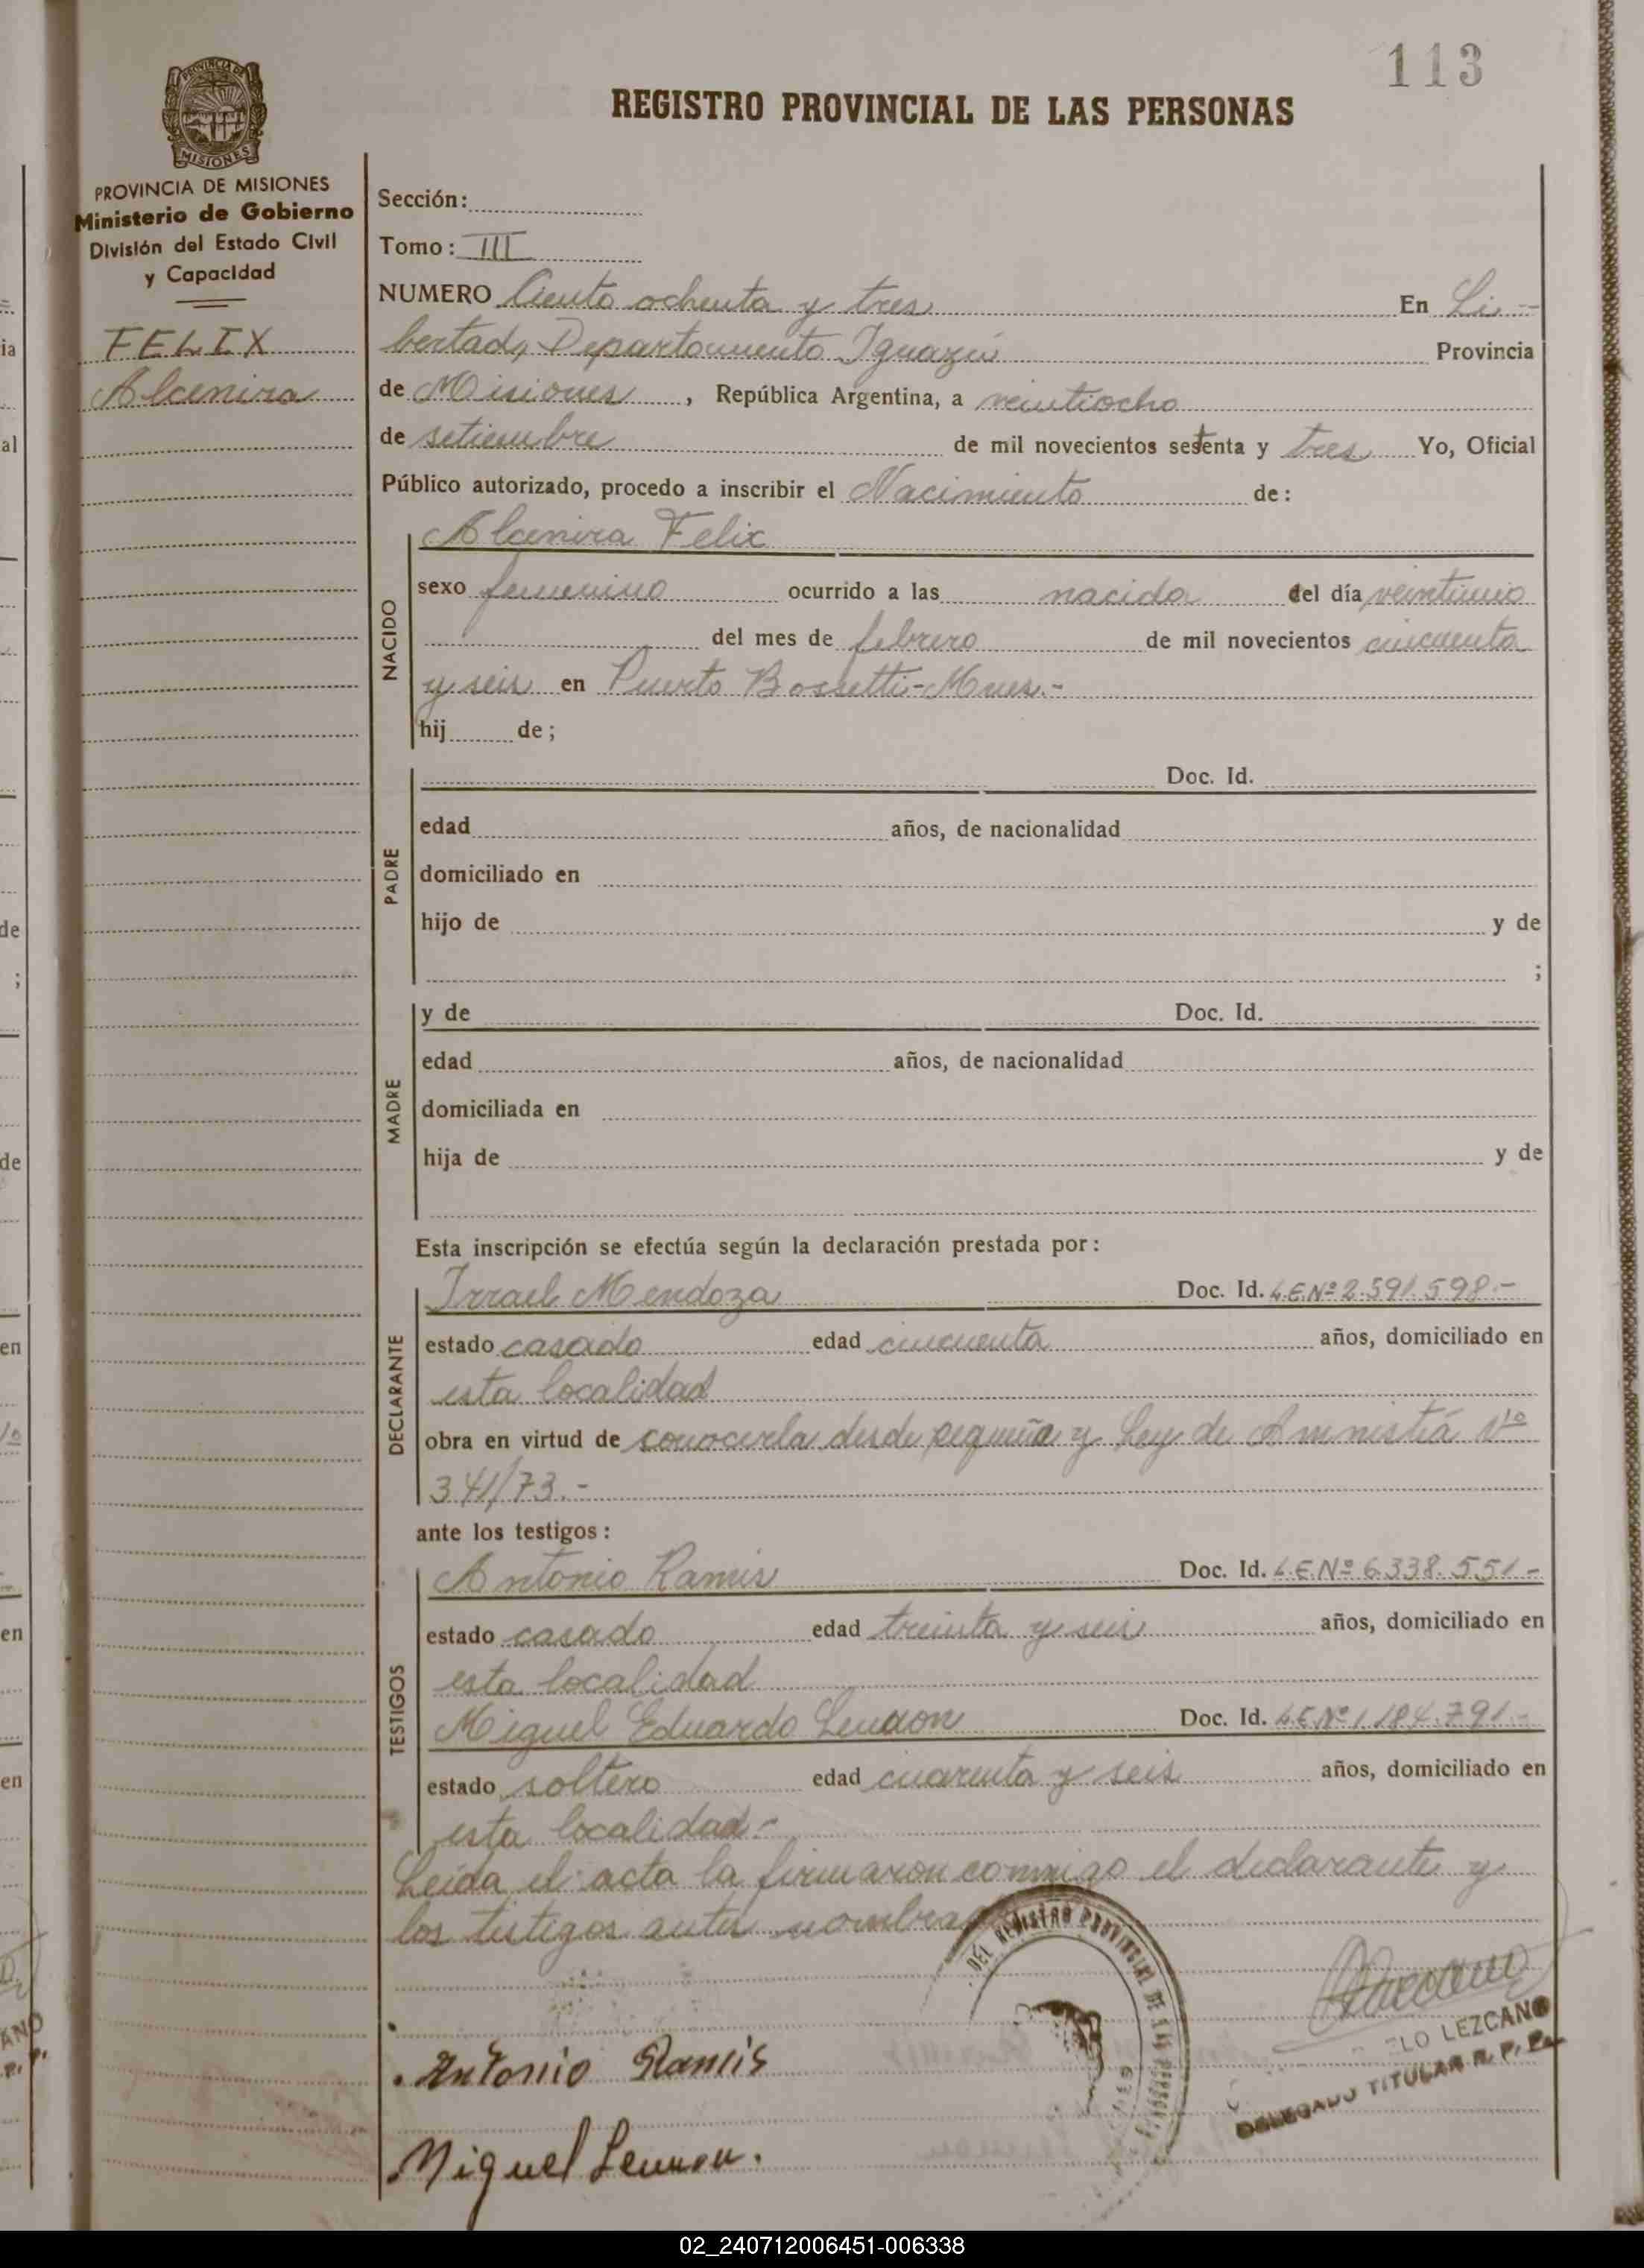 113
PROVINCIA DE
MISIONES
REGISTRO PROVINCIAL DE LAS PERSONAS
PROVINCIA DE MISIONES
Ministerio de Gobierno
División del Estado Civil
y Capacidad
FELIX
Alcenira
Sección:
Tomo: III
NUMERO Ciento ochenta y tres En Li-
bertad, Departamento Iguazú Provincia
de Misiones, República Argentina, a veintiocho
de setiembre de mil novecientos setenta y tres Yo, Oficial
Público autorizado, procedo a inscribir el Nacimiento de:
NACIDO
Alcenira Felix
sexo femenino ocurrido a las nacida del día veintiuno
del mes de febrero de mil novecientos cincuenta
y seis en Puerto Bossetti-Mnes.-
hij de;
PADRE
Doc. Id.
edad años, de nacionalidad
domiciliado en
hijo de y de
;
MADRE
y de Doc. Id.
edad años, de nacionalidad
domiciliada en
hija de y de
Esta inscripción se efectúa según la declaración prestada por:
DECLARANTE
Irrael Mendoza Doc. Id. L.E.Nº 2.591.598.-
estado casado edad cincuenta años, domiciliado en
esta localidad
obra en virtud de conocerla desde pequeña y Ley de Amnistía Nº
341/73.-
ante los testigos:
TESTIGOS
Antonio Ramis Doc. Id. L.E.Nº 6.338.551-
estado casado edad treinta y seis años, domiciliado en
esta localidad
Miguel Eduardo Lennon Doc. Id. L.E.Nº 1.184.791.-
estado soltero edad cuarenta y seis años, domiciliado en
esta localidad.-
Leída el acta la firmaron conmigo el declarante y
los testigos antes
DEL REGISTRO PROVINCIAL DE LAS PERSONAS
LO LEZCANO
DELEGADO TITULAR R. P. P.
Antonio Ramis
Miguel Lennon.
ia
al
de
;
de
en
en
en
02_240712006451-006338